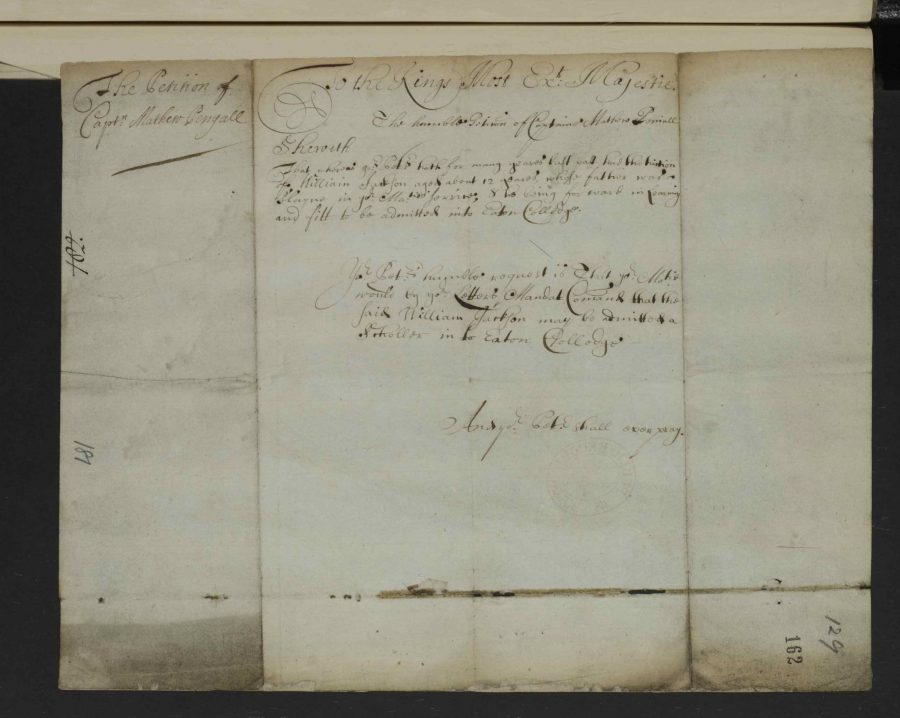 The Petition of
Capt:n Mathew Pengall
To the Kings Most Ext: Majestie.
The humble Peticon of Captaine Mathew
Sheweth
That whereas yor: Petr: hath for many yeares last past had the tuition
of William Jackson aged about 12 yeares whose father was
slayne in yor: Maties: service, & he being forward in Learning
and fitt to be admitted into Eaton Colledge.
Yor: Petrs: humble request is That yor: Matie:
would by yor: Letters Mandat Comand that the
said William Jackson may be admitted a
Scholler in to Eaton Colledge
And yor: Petr: shall ever pray.
181
129
162